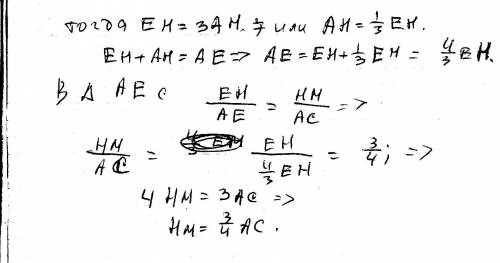 тогда EH = 3AH. или AH = 1/3 EH.
EH + AH = AE => AE = EH + 1/3 EH = 4/3 EH.
В Δ AEC EH/AE = HM/AC =>
HM/AC = EH/(4/3 EH) = 3/4; =>
4 HM = 3 AC =>
HM = 3/4 AC.